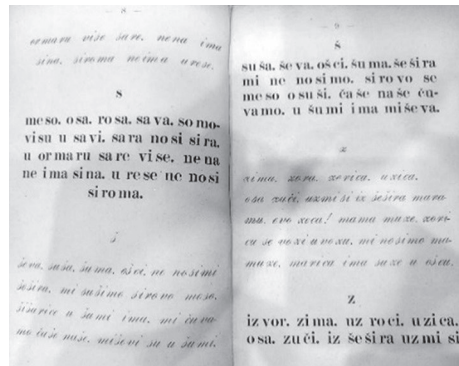 — 8 —
ormaru vise sare. nena ima
sina. siroma neima u rese.
s
meso. osa. rosa. sava. somo-
vi su u savi. sara nosi sira.
u ormaru sare vise. ne na
ne ima sina. u re se ne nosi
siroma.
š
ševa, suša, šuma. ošci, ne nosimi
šešira. mi sušimo sirovo meso.
šišarice u šumi ima. mi čuva-
mo čaše naše. miševi su u šumi.
— 9 —
š
suša. ševa. ošci. šuma. šešira
mi ne nosimo. sirovo se
meso osuši. čaše naše ču-
vamo. u šumi ima miševa.
z
zima. zora. zorica. uzica.
osa zuči. uzmi si iz šešira mara-
mu. evo zoca! mama maze. zori-
ca se vozi u vozu. mi nosimo
maze. marica ima suze u ošcu.
z
izvor. zima. uz roci. uzica.
osa. zuči. iz šešira uzmi si